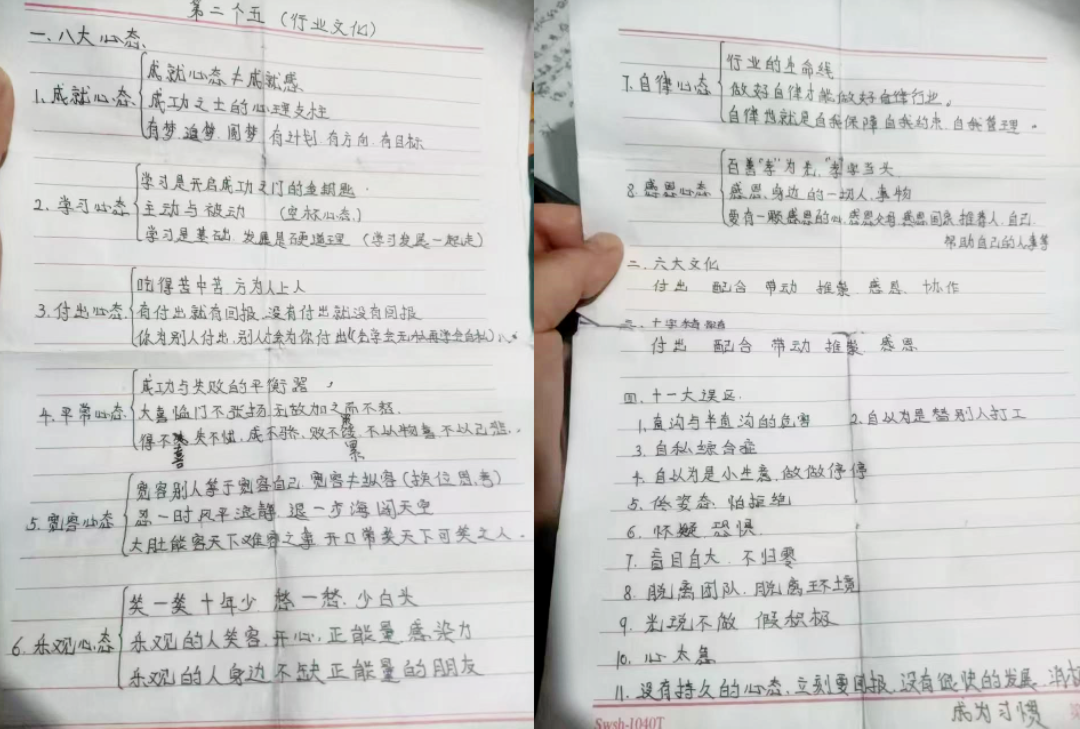 第二个五（行业文化）
一、八大心态、
1、成就心态
成就心态≠成就感
成功之士的心理支柱
有梦 追梦 圆梦 有计划 有方向 有目标
2、学习心态
学习是开启成功之门的金钥匙.
主动与被动 （空杯心态）
学习是基础 发展是硬道理 （学习发展一起走）
3、付出心态
吃得苦中苦 方为人上人
有付出就有回报、没有付出就没有回报
你为别人付出,别人会为你付出(先学会无私再学会自私)
4、平常心态
成功与失败的平衡器
大喜临门不张扬 无故加之而不怒.
得不喜 失不忧、成不骄、败不馁、不以物喜 不以己悲.
累
5、宽容心态
宽容别人等于宽容自己 宽容≠纵容（换位思考）
忍一时风平浪静、退一步海阔天空
大肚能容天下难容之事 开口常笑天下可笑之人.
6、乐观心态
笑一笑 十年少 愁一愁、少白头
乐观的人笑容、开心、正能量 感染力
乐观的人身边不缺正能量的朋友
7、自律心态
行业的生命线
做好自律才能做好自律行业。
自律也就是自我保障 自我约束、自我管理.
8、感恩心态
百善"孝"为先,"孝"字当头
感恩、身边的一切人、事物
要有一颗感恩的心、感恩父母 感恩国家 推荐人、自己
帮助自己的人事等
二、六大文化
付出 配合 带动 推崇 感恩 协作
三、十字精髓
付出 配合 带动 推崇 感恩
四、十一大误区
1、直沟与半直沟的危害 2、自以为是替别人打工
3、自私综合症
4、自以为是小生意、做做停停
5、低姿态 怕拒绝
6、怀疑 恐惧
7、盲目自大 不归零
8、脱离团队、脱离环境
9、光说不做 假积极
10、心太急
11、没有持久的心态、立刻要回报、没有很快的发展 消极
成为习惯
Swsh-1040T